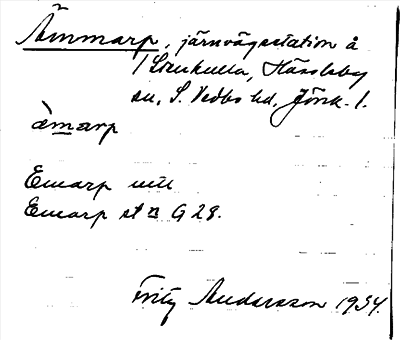 Ämmarp, järnvägsstation å
1 Stenkulla, Hässleby
sn, S. Vedbo hd, Jönk. l.
àmarp
Emarp mtl
Emarp st G 28.
Fritz Andersson 1934.